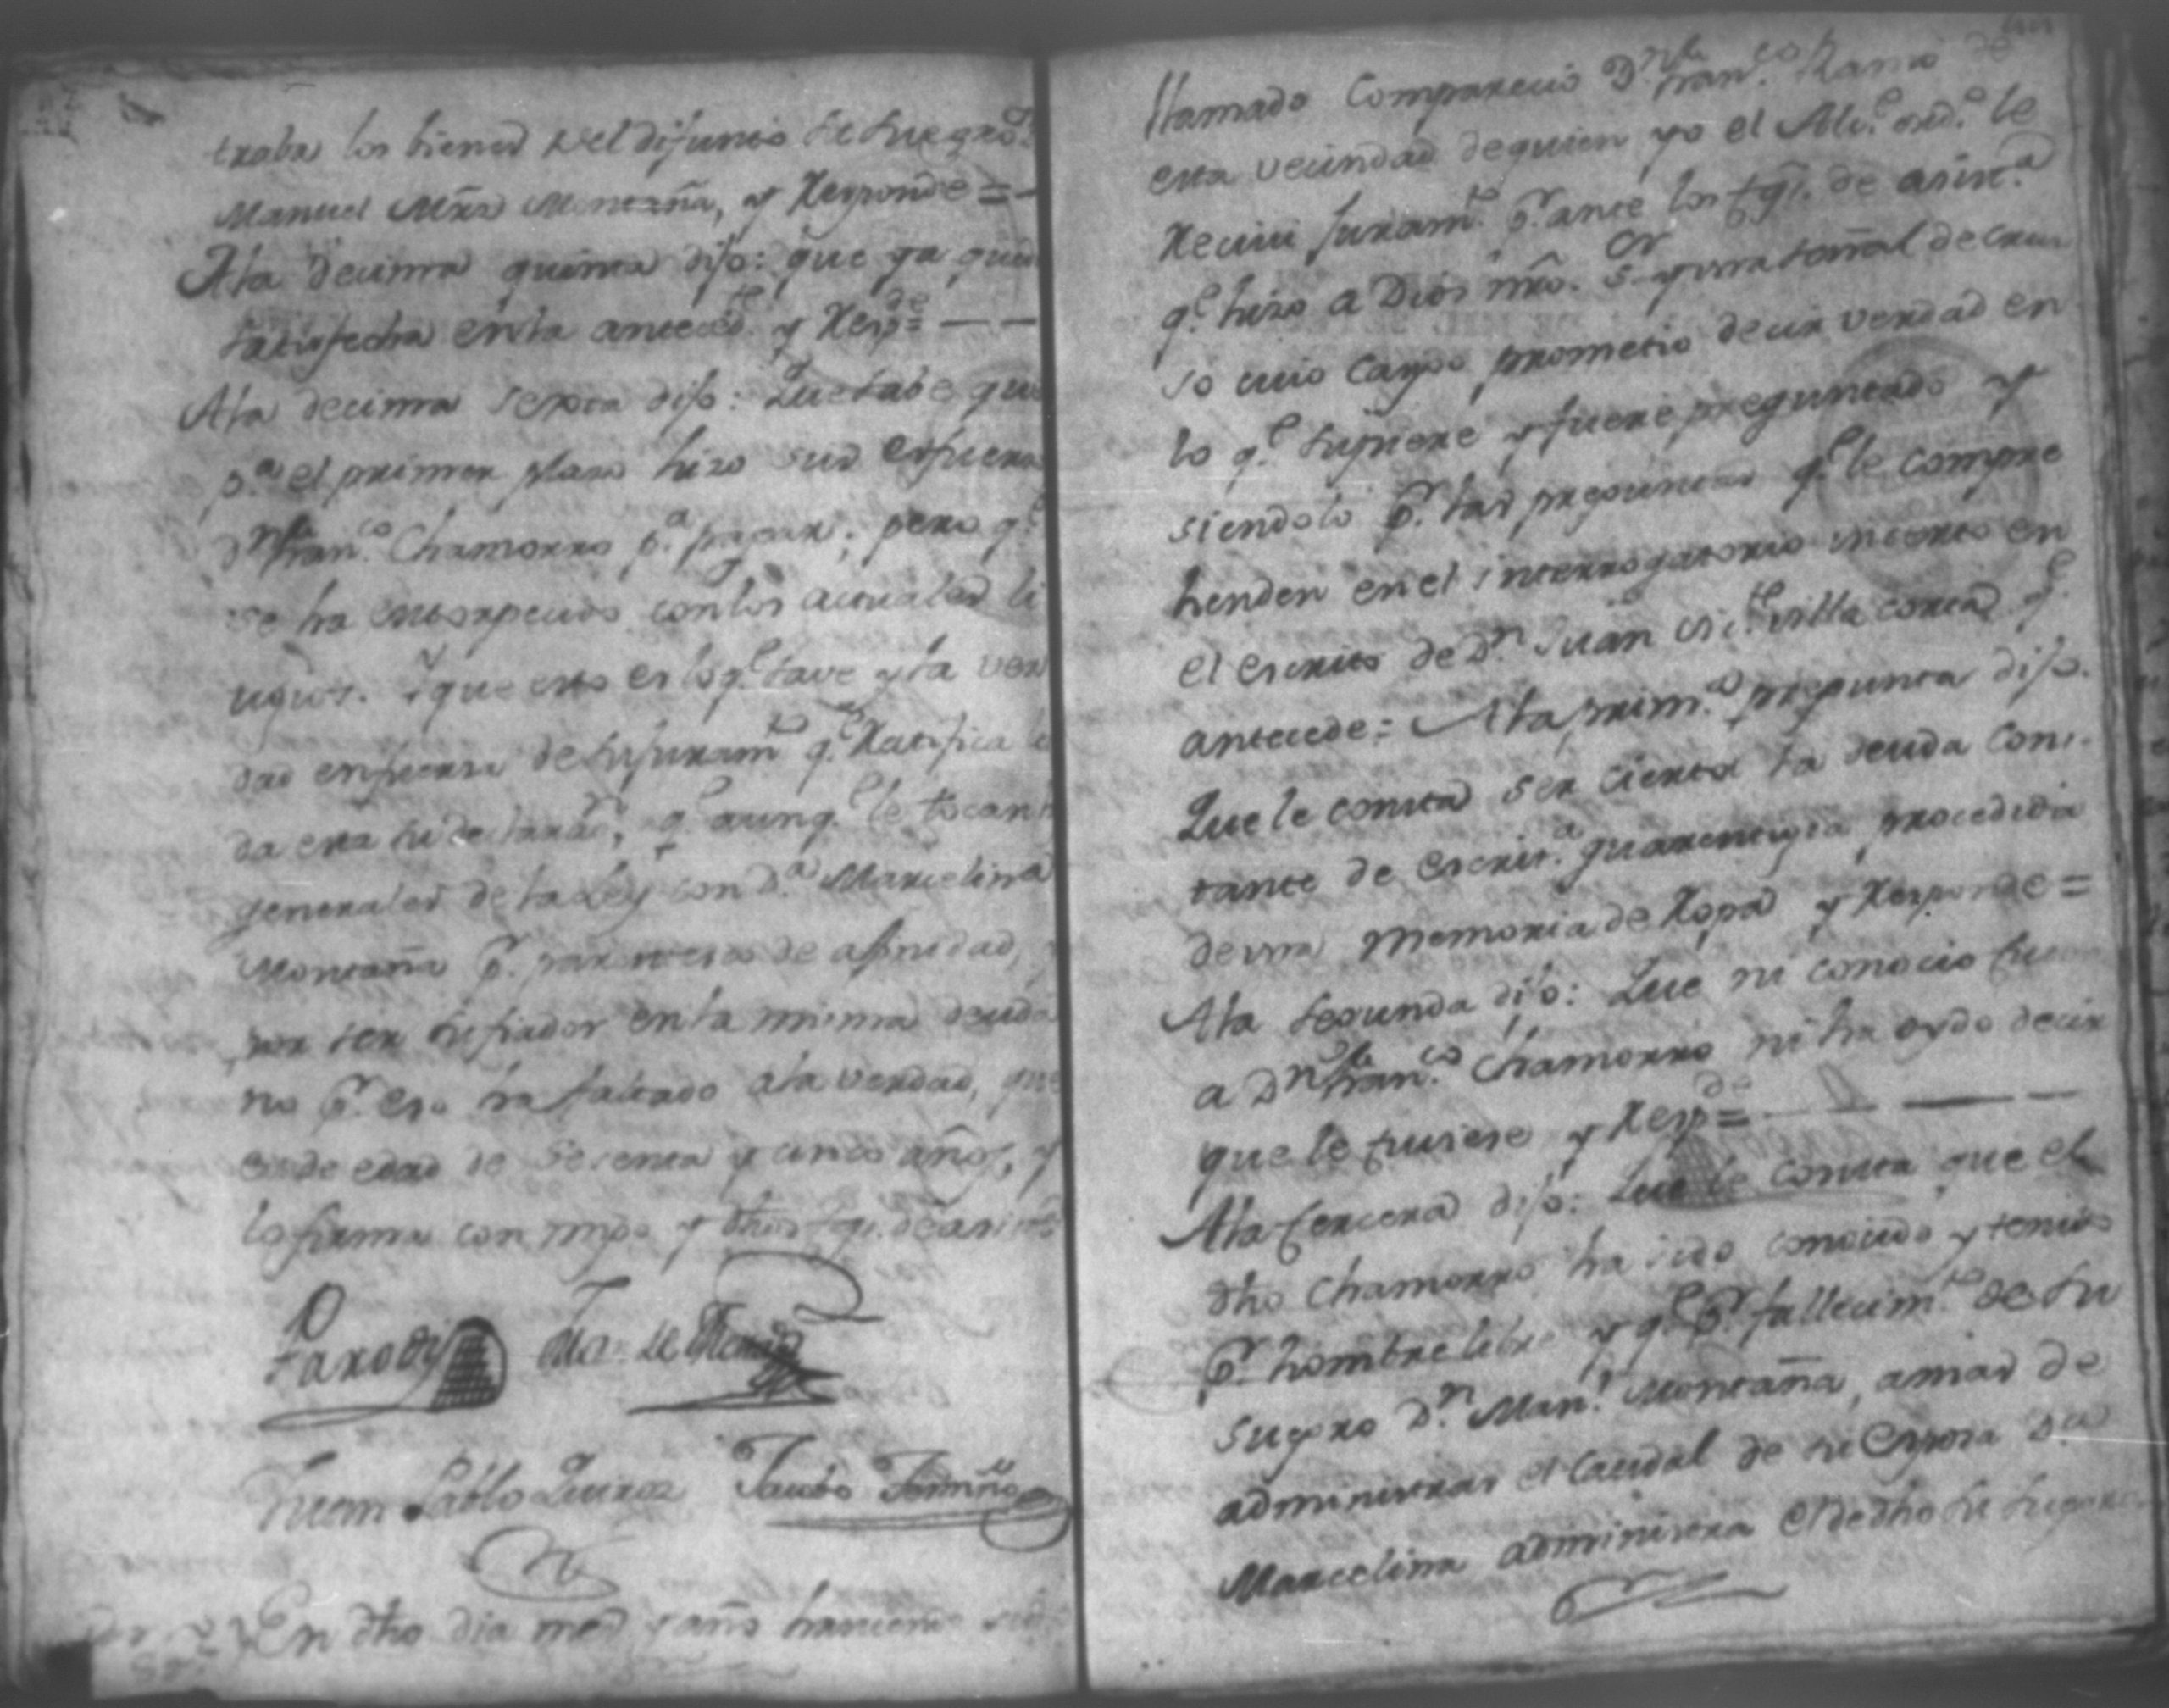 traba los bienes del difunto su suegro D.n
Manuel Mrñz Montaña, y Responde =
Ala decima quinta dijo: que ya queda
satisfecha enla anteced.te y Resp.de =
Ala decima sexta dijo: Que sabe que
p.a el primer plazo hizo sus esfuerzos
Dn Fran.co Chamorro p.a pagar; pero q.e
se ha entorpecido con los actuales li
tigios. Y que esto es lo q.e save y la ver
dad en fuerza de su juram.to q.e Ratifica le
da esta su declarac.n, q.e aunq.e le tocan
generales de la Ley con D.a Marcelina
Montaña p.r parentesco de afinidad, y
por ser su fiador en la misma deuda
no p.r eso ha faltado ala verdad, que
es de edad de sesenta y cinco años, y
lo firma con migo y dhos tgs. de asist.a
Parodi
Juan Pablo Quiroz Jacobo
En dho dia mes y año haviendo sido
llamado Comparecio D.n Fran.co Ramo de
esta vecindad de quien yo el Alc.e ord.o le
Recivi Juram.to p.r ante los tgs. de asist.a
q.e hizo a Dios nro. S.or y una señal de cruz
so cuio cargo prometio decir verdad en
lo q.e supiere y fuere preguntado y
siendolo p.r las preguntas q.e le compre
henden en el interrogatorio incerto en
el escrito de D.n Juan Vic.te Villa corta q.e
antecede: Ala prim.a pregunta dijo.
Que le consta ser cierta la deuda cons-
tante de escrit.a guarentigia procedida
de una memoria de Ropa y Responde =
Ala segunda dijo: Que ni conocio su
a Dn Fran.co Chamorro ni ha oydo decir
que le tuviese y Resp.de =
Ala tercera dijo: Que le consta que el
dho Chamorro ha sido conocido y tenido
p.r hombre libre y q.e p.r fallecim.to de su
suegro D.n Man.l Montaña, amas de
administrar el caudal de su Esposa D.a
Marcelina administra el de dho su suegro